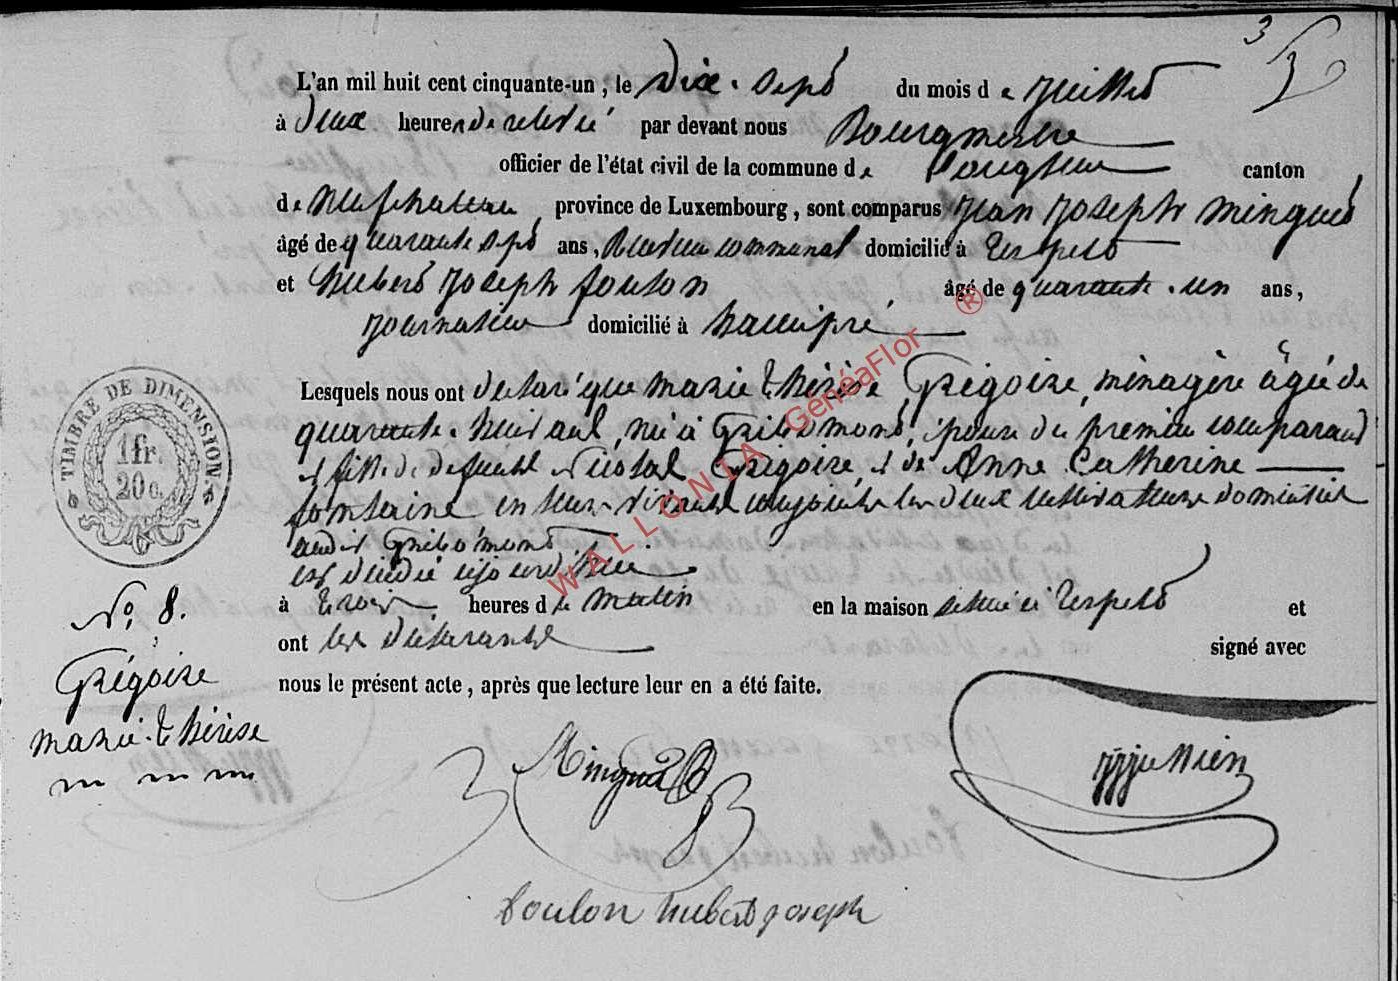 3
L'an mil huit cent cinquante-un, le Dix-Sept du mois de juillet
à Deux heures de relevé par devant nous Bourgmestre
officier de l'état civil de la commune de Longlier canton
de Neufchateau province de Luxembourg, sont comparus Jean Joseph Minguet
âgé de quarante sept ans, Receveur communal domicilié à Respelt
et Hubert Joseph foulon âgé de quarante-un ans,
journalier domicilié à hamipré
Lesquels nous ont declaré que marie thérèse Grégoire, ménagère âgée de
quarante-huit ans, née à Gribomont, épouse du premier comparant
et fille de defunts Nicolas Grégoire et de Anne Catherine
fontaine en leur vivant conjoints les deux cultivateurs domiciliés
audit Gribomont
est décédée aujourd'hui
à trois heures du matin en la maison située à Respelt et
ont les Déclarants signé avec
nous le présent acte, après que lecture leur en a été faite.
TIMBRE DE DIMENSION.
1 fr.
20 c.
No. 8.
Grégoire
marie thérèse
Minguet
foulon hubert joseph
WALLONIA GenéaFlor ®